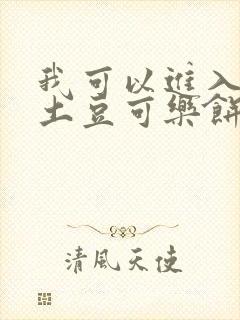 我可以進入
土豆可樂餅
清風天使